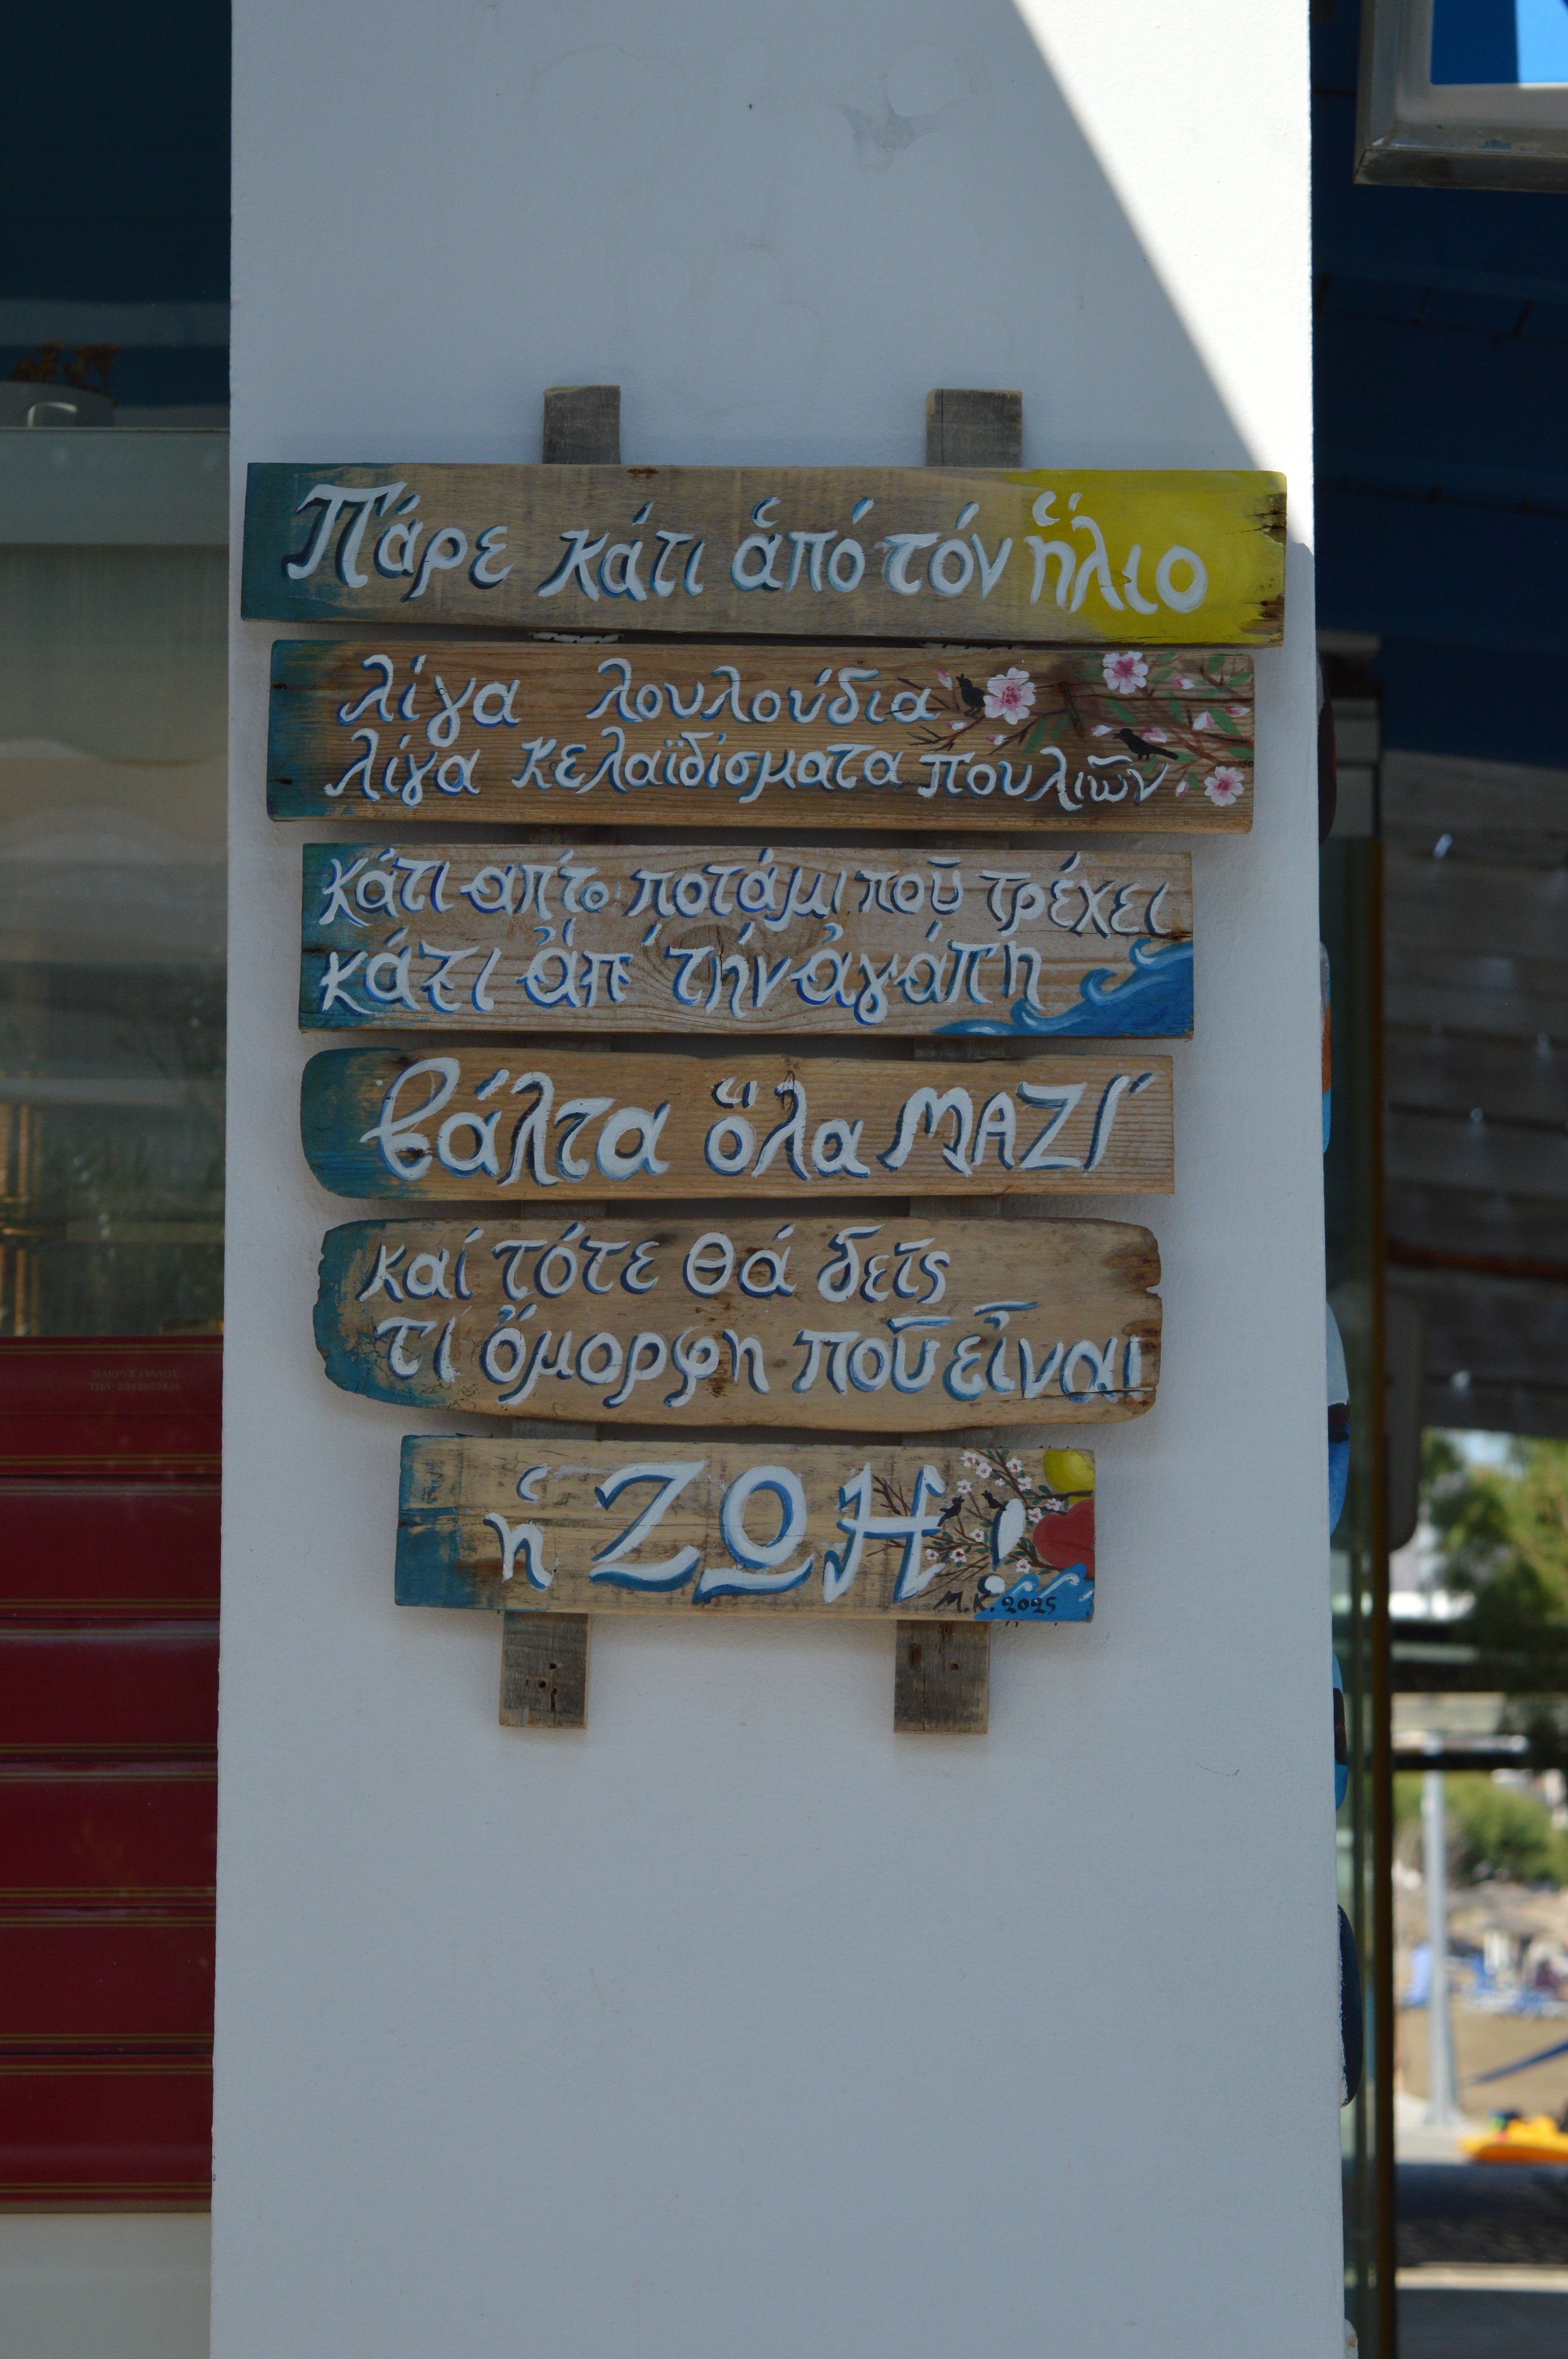 Πάρε κάτι ἀπό τόν ἥλιο
λίγα λουλούδια
λίγα κελαϊδίσματα πουλιῶν
κάτι ἀπ' τό ποτάμι ποῦ τρέχει
κάτι ἀπ' τήν ἀγάπη
βάλτα ὅλα ΜΑΖΙ΄
καί τότε θά δεῖς
τί ὄμορφη ποῦ εἶναι
ἡ ΖΩΗ!
Μ.Κ. 2025
ΜΑΚΡΥΣ ΓΙΑΛΟΣ